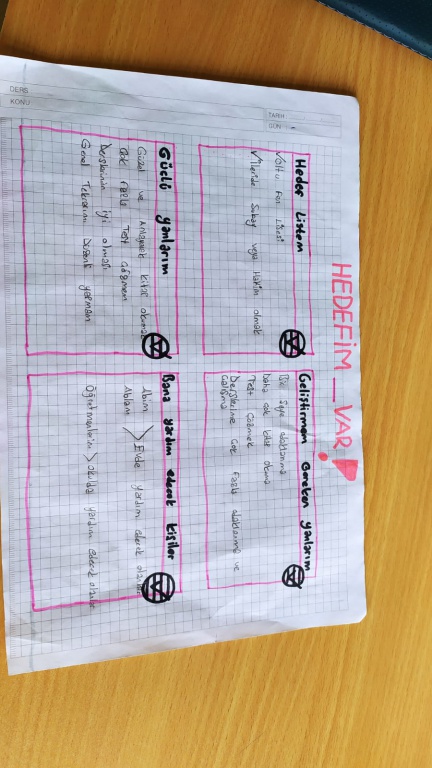 DERS
KONU
TARİH
GÜN
HEDEFİM _ VAR!
Hedef Listem
Fen Lisesi
İleride Subay veya Hakim olmak
Geliştirmem Gereken yanlarım
Bir Şeye odaklanma
Daha çok kitap okuma
Test Çözmek
Derslerime Çok Fazla odaklanma ve
Çalışma
Güçlü yanlarım
Güzel ve Anlayarak kitap okumam
Çok Fazla Test Çözmem
Derslerimin iyi olması
Genel Tekrarımı Düzenli yapmam
Bana yardım edecek kişiler
Abim
Ablam > Evde yardım edecek olanlar
Öğretmenlerim > okulda yardım edecek olanlar